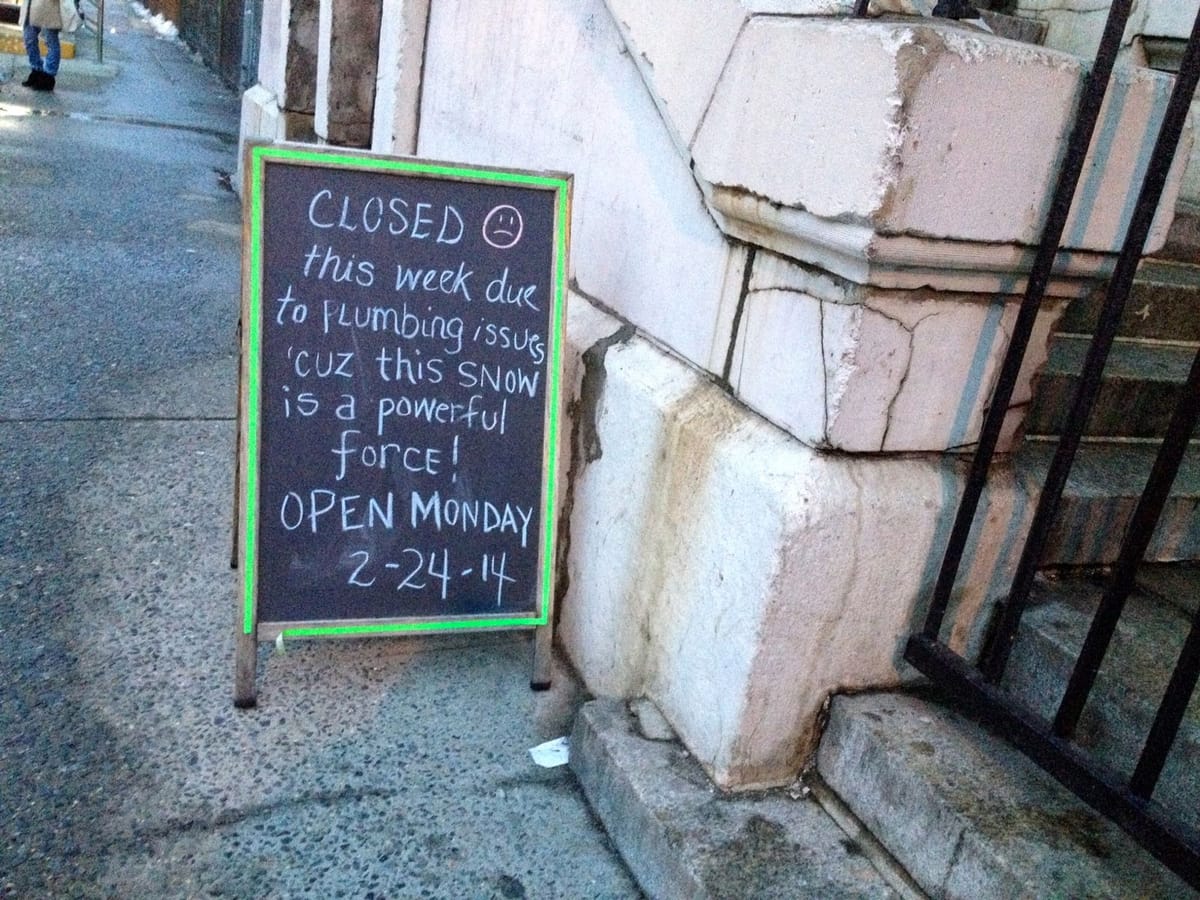 CLOSED
this week due
to PLumbing issues
'cuz this SNOW
is a powerful
force!
OPEN MONDAY
2-24-14